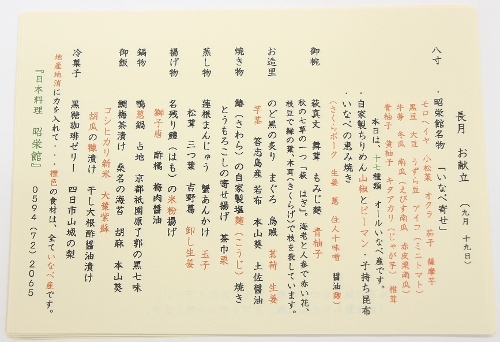 長月 お献立 (九月 十九日)
八寸
・昭栄館名物 「いなべ寄せ」
モロヘイヤ 小松菜 オクラ 茄子 薩摩芋
黒豆 大豆 うずら豆 アイコ(ミニトマト)
牛蒡 冬瓜 南瓜(えびす南瓜、赤皮栗南瓜)
青柚子 黄柚子 キタアカリ(じゃが芋) 椎茸
本日は、十七種類 オールいなべ産です。
・自家製ちりめん山椒とピーマン・子持ち昆布
・いなべの恵み焼き
(さくらポーク 生姜 葱 住人十味噌 醤油麹)
御椀
萩真丈 舞茸 もみじ麩 青柚子
秋の七草の一つ「萩 はぎ」。海老と人参で赤い花、
枝豆で緑の葉・木耳(きくらげ)で枝を表しています。
お造里
のど黒の炙り まぐろ 烏賊 茗荷 生姜
芋茎 答志島産 若布 本山葵 土佐醤油
焼き物
鰆(さわら)の自家製塩麹(こうじ)焼き
とうもろこしの寄せ揚げ 茶巾栗
蒸し物
蓮根まんじゅう 蟹あんかけ 玉子
松茸 三つ葉 吉野葛 卸し生姜
揚げ物
名残り鱧(はも)の米粉揚げ
獅子唐 酢橘 梅肉醤油
鍋物
鴨葱鍋 占地 京都祇園原了郭の黒七味
御飯
鯛梅茶漬け 桑名の海苔 胡麻 本山葵
コシヒカリ新米 大葉紫蘇
胡瓜の糠漬け 干し大根酢醤油漬け
冷菓子
黒糖珈琲ゼリー 四日市山城の梨
地産地消に力を入れて・・・橙色の食材は、全ていなべ産です。
『日本料理 昭栄館』 0594(72)2065